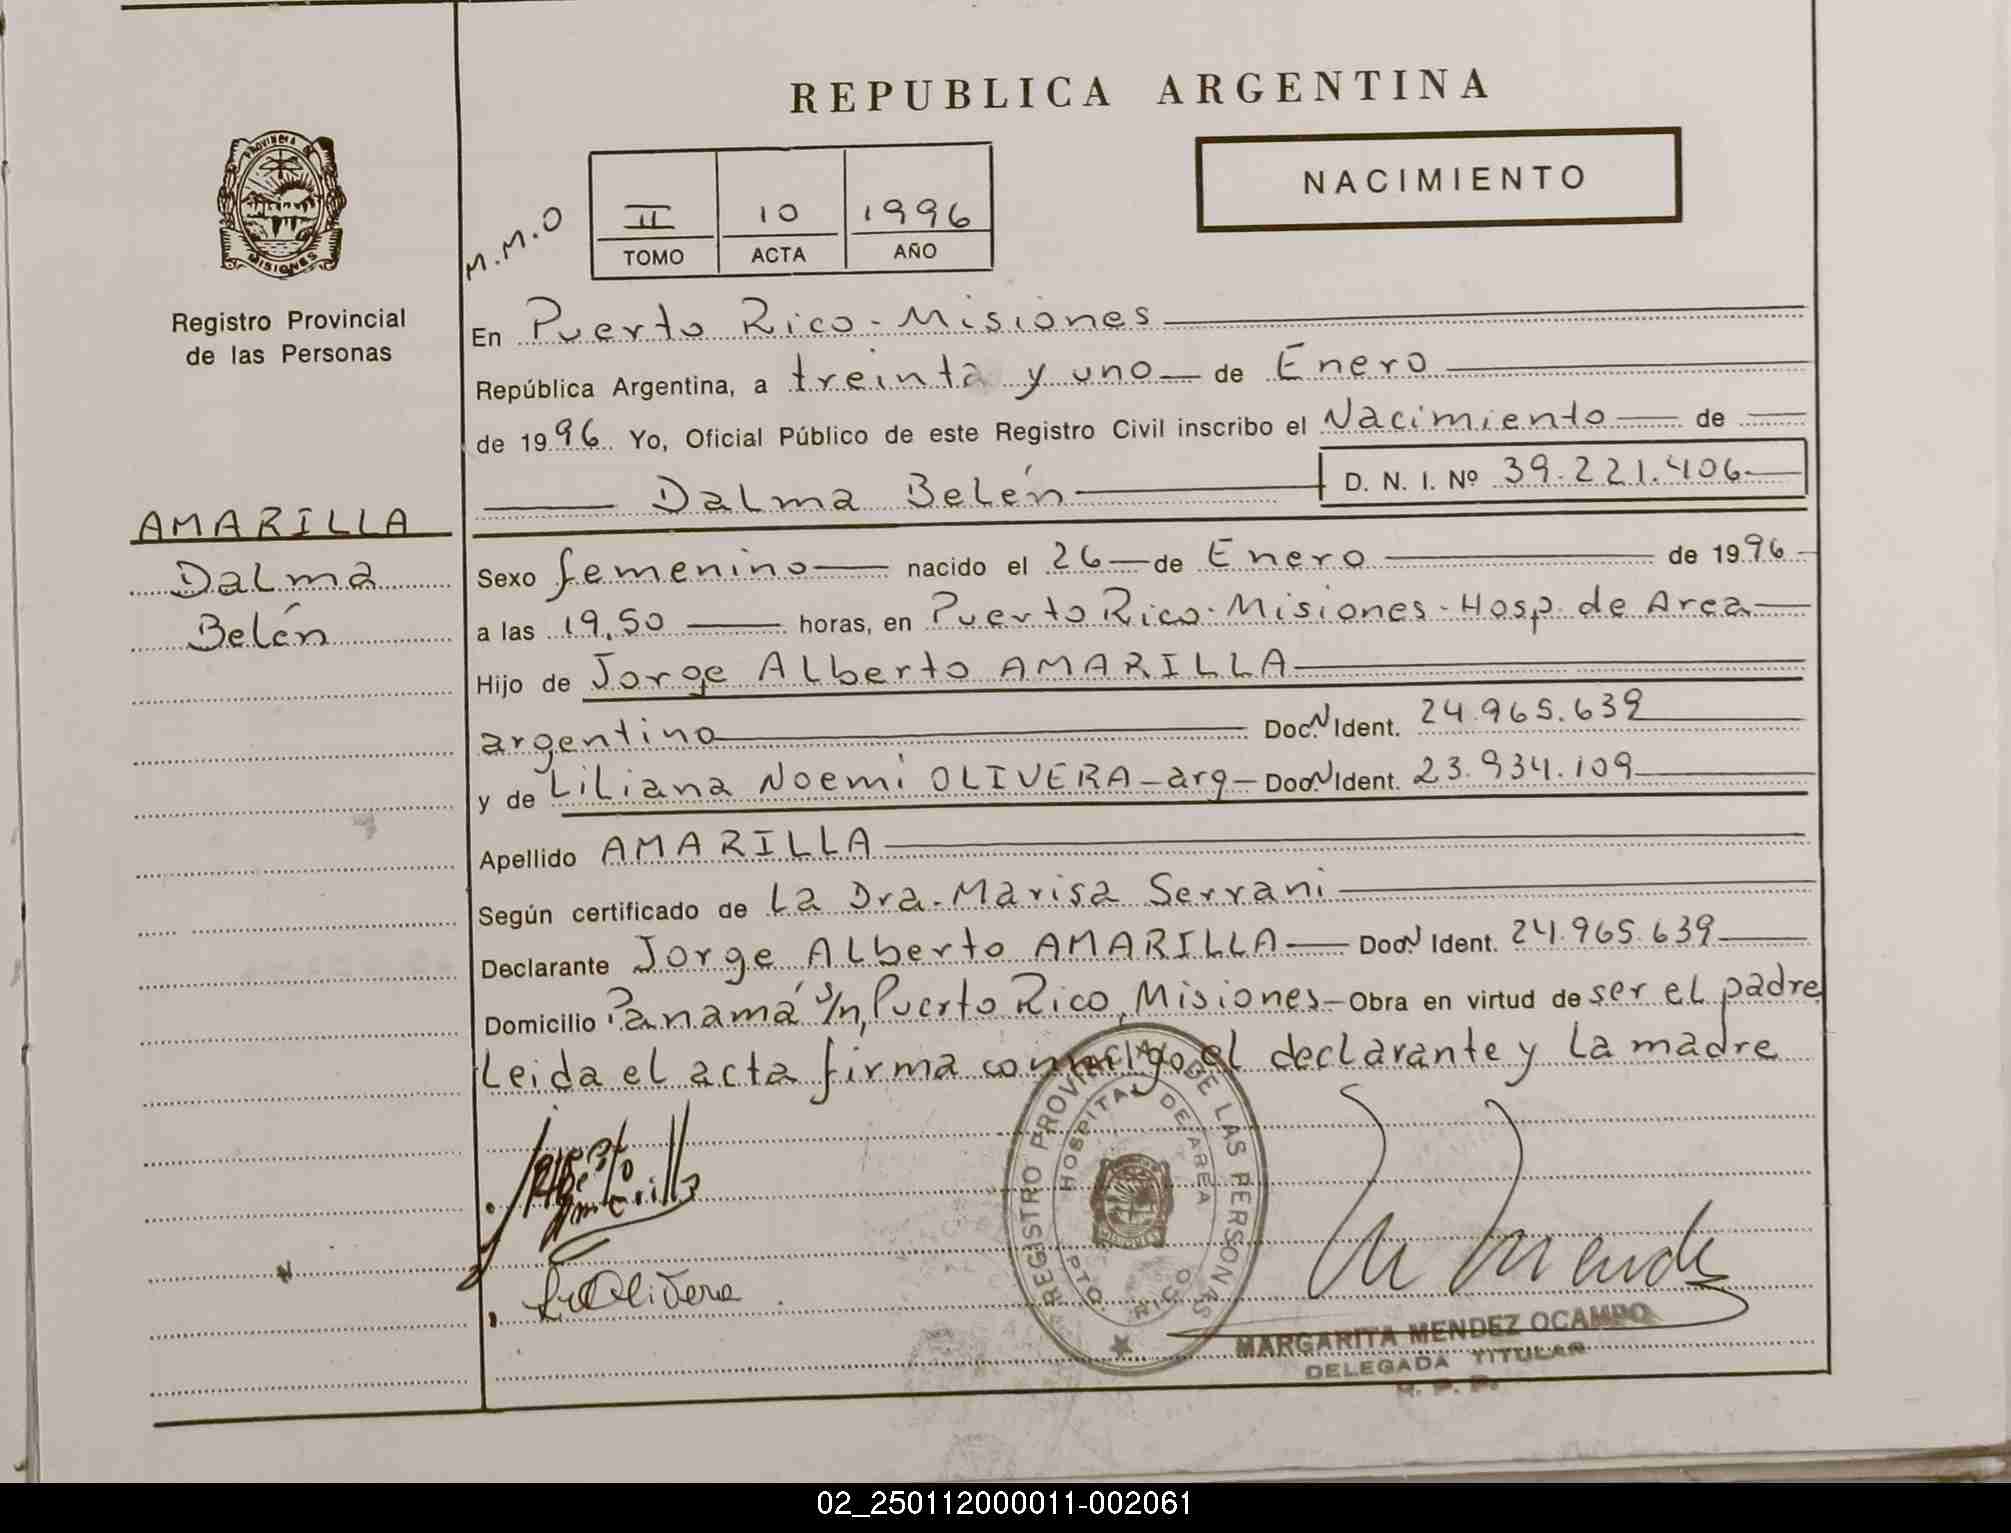 REPUBLICA ARGENTINA
NACIMIENTO
PROVINCIA DE
MISIONES
Registro Provincial
de las Personas
M.M.O
II 10 1996
TOMO ACTA AÑO
En Puerto Rico - Misiones
República Argentina, a treinta y uno de Enero
de 1996. Yo, Oficial Público de este Registro Civil inscribo el Nacimiento de
Dalma Belén D. N. I. Nº 39.221.406
AMARILLA
Dalma
Belén
Sexo femenino nacido el 26 de Enero de 1996
a las 19,50 horas, en Puerto Rico - Misiones - Hosp. de Area
Hijo de Jorge Alberto AMARILLA
argentino Doc. N Ident. 24.965.639
y de Liliana Noemi OLIVERA - arg - Doc. N Ident. 23.934.109
Apellido AMARILLA
Según certificado de La Dra. Marisa Serrani
Declarante Jorge Alberto AMARILLA Doc. N Ident. 24.965.639
Domicilio Panamá s/n, Puerto Rico, Misiones - Obra en virtud de ser el padre
Leida el acta firma conmigo el declarante y La madre
REGISTRO PROVINCIAL DE LAS PERSONAS
HOSPITAL DE AREA
PTO. RICO
L Olivera
MARGARITA MENDEZ OCAMPO
DELEGADA TITULAR
R. P. P.
02_250112000011-002061